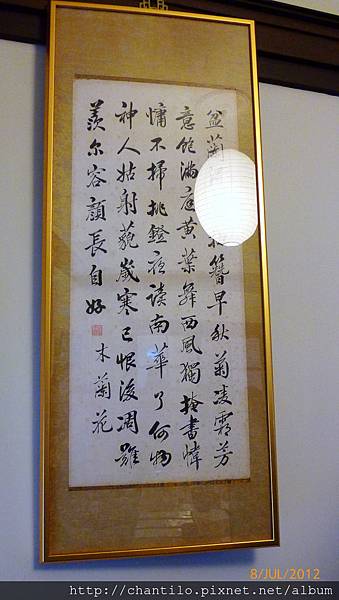 盆蘭 簪早秋菊凌霜芳
意飽滿庭黃葉舞西風獨掩書幃
慵不掃挑鐙夜讀南華了何物
神人姑射藐歲寒已恨後凋難
羨尔容顏長自好
木蘭花
8/JUL/2012
http://chantilo.pixnet.net/album